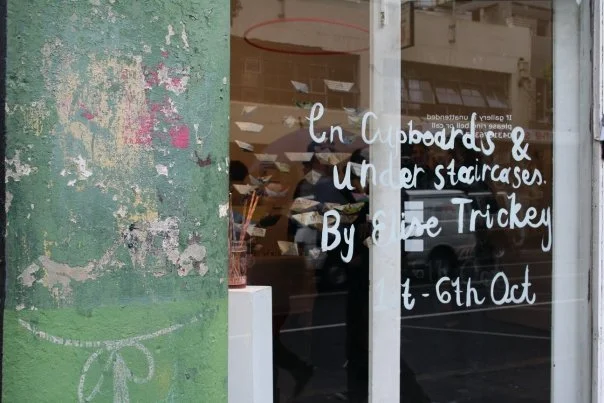 In Cupboards &
under staircases.
By Elise Trickey
1st - 6th Oct
If gallery unattended
please ring bell or call